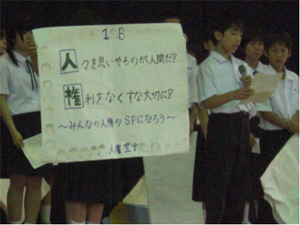 1B
人々を思いやるのが人間だ!
権利をなくすな大切に!
～みんなの人権のSPになろう～
人権宣言